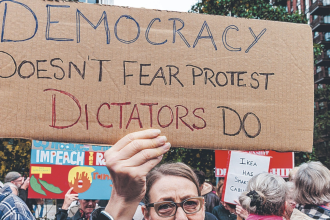 DEMOCRACY
DOESN'T FEAR PROTEST
DICTATORS DO
IMPEACH
IKEA
HAS
CAB